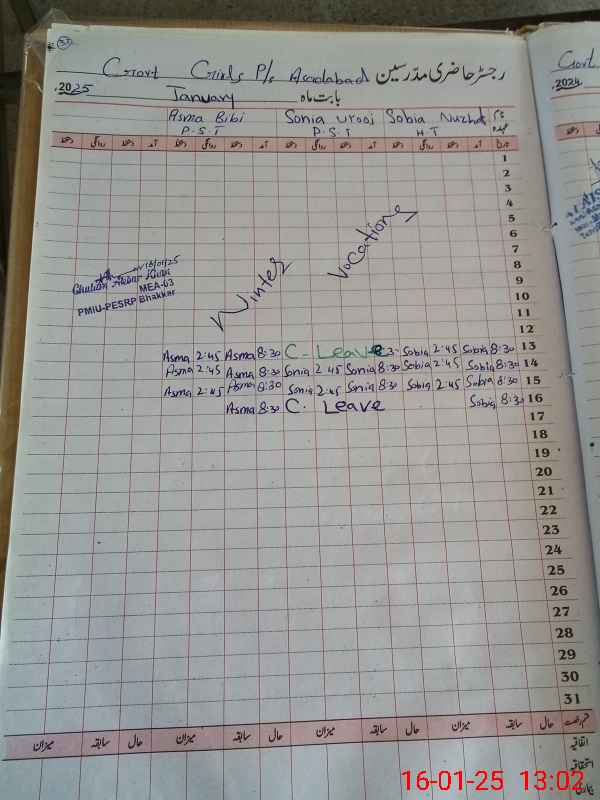 37
Govt Girls P/s Asadabad رجسٹر حاضری مدرسین
.2025 January بابت ماہ
Asma Bibi Sonia Urooj Sobia Nuzhat
P.S.T P.S.T HT
1
2
3
4
5
6
7
8
9
10
11
12
Winter Vocations
16/01/25
MEA-63
PMIU-PESRP Bhakkar
Asma 2:45 Asma 8:30 C- Leave Sobia 2:45 Sobia 8:30 13
Asma 2:45 Asma 8:30 Sonia 2 45 Sonia 8:30 Sobia 2:45 Sobia 8:30 14
Asma 2:45 Asma 8:30 Sonia 2:45 Sonia 8:30 Sobia 2:45 Sobia 8:30 15
Asma 8:30 C. Leave Sobia 8:30 16
17
18
19
20
21
22
23
24
25
26
27
28
29
30
31
حال سابقہ میزان حال سابقہ میزان حال سابقہ میزان
Govt
.2024
16-01-25 13:02